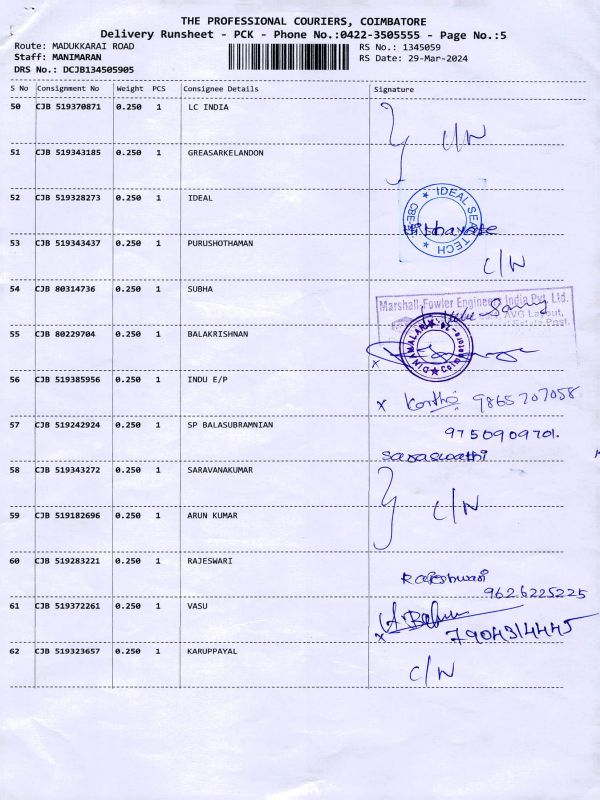 THE PROFESSIONAL COURIERS, COIMBATORE
Delivery Runsheet - PCK - Phone No.:0422-3505555 - Page No.:5
Route: MADUKKARAI ROAD RS No.: 1345059
Staff: MANIMARAN RS Date: 29-Mar-2024
DRS No.: DCJB134505905
S No Consignment No Weight PCS Consignee Details Signature
50 CJB 519370871 0.250 1 LC INDIA
C/N
51 CJB 519343185 0.250 1 GREASARKELANDON
52 CJB 519328273 0.250 1 IDEAL
IDEAL SEA TECH
CBE
53 CJB 519343437 0.250 1 PURUSHOTHAMAN
C/N
54 CJB 80314736 0.250 1 SUBHA
Marshall-Fowler Engineers India Pvt. Ltd.
AVG Layout,
Post.
55 CJB 80229704 0.250 1 BALAKRISHNAN
DINAMALAR
Coimbatore
x
56 CJB 519385956 0.250 1 INDU E/P
x 9865707058
57 CJB 519242924 0.250 1 SP BALASUBRAMNIAN
9750909701.
saraswathi
58 CJB 519343272 0.250 1 SARAVANAKUMAR
C/N
59 CJB 519182696 0.250 1 ARUN KUMAR
60 CJB 519283221 0.250 1 RAJESWARI
Rajeshwari
9626225225
61 CJB 519372261 0.250 1 VASU
x 7904314445
62 CJB 519323657 0.250 1 KARUPPAYAL
C/N